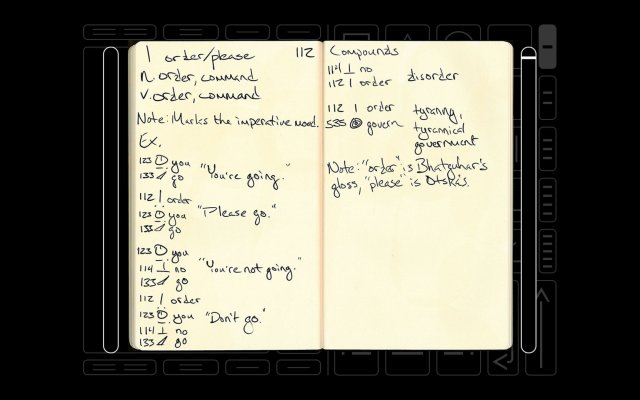 | order/please 112
n. order, command
v. order, command
Note: Marks the imperative mood.
Ex.
123 you
133 go "You're going."
112 | order
123 you "Please go."
133 go
123 you
114 ⊥ no "You're not going."
133 go
112 | order
123 you "Don't go."
114 ⊥ no
133 go
Compounds
114 ⊥ no
112 | order disorder
112 | order tyranny,
535 govern tyrannical
government
Note: "order" is Bhatguhar's
gloss, "please" is Otska's.